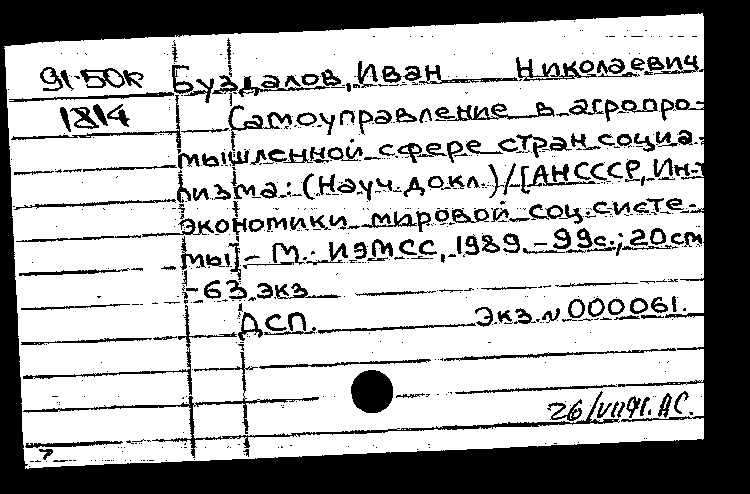 91-50К Буздалов, Иван Николаевич
1814 Самоуправление в агропро-
мышленной сфере стран социа-
лизма: (Науч. докл.)/[АН СССР, Ин-т
экономики мировой соц. систе-
мы]- М.: ИЭМСС, 1989. - 99с.; 20см
-63 экз
ДСП. Экз. N 000061.
26/VII91. АС.